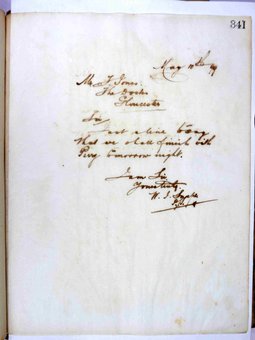 341
May
Mr T. Jones
The Docks
Gloucester
Sir
Just a line to say
that we shall finish with
tomorrow night.
I am Sir
Yours truly
W. J.